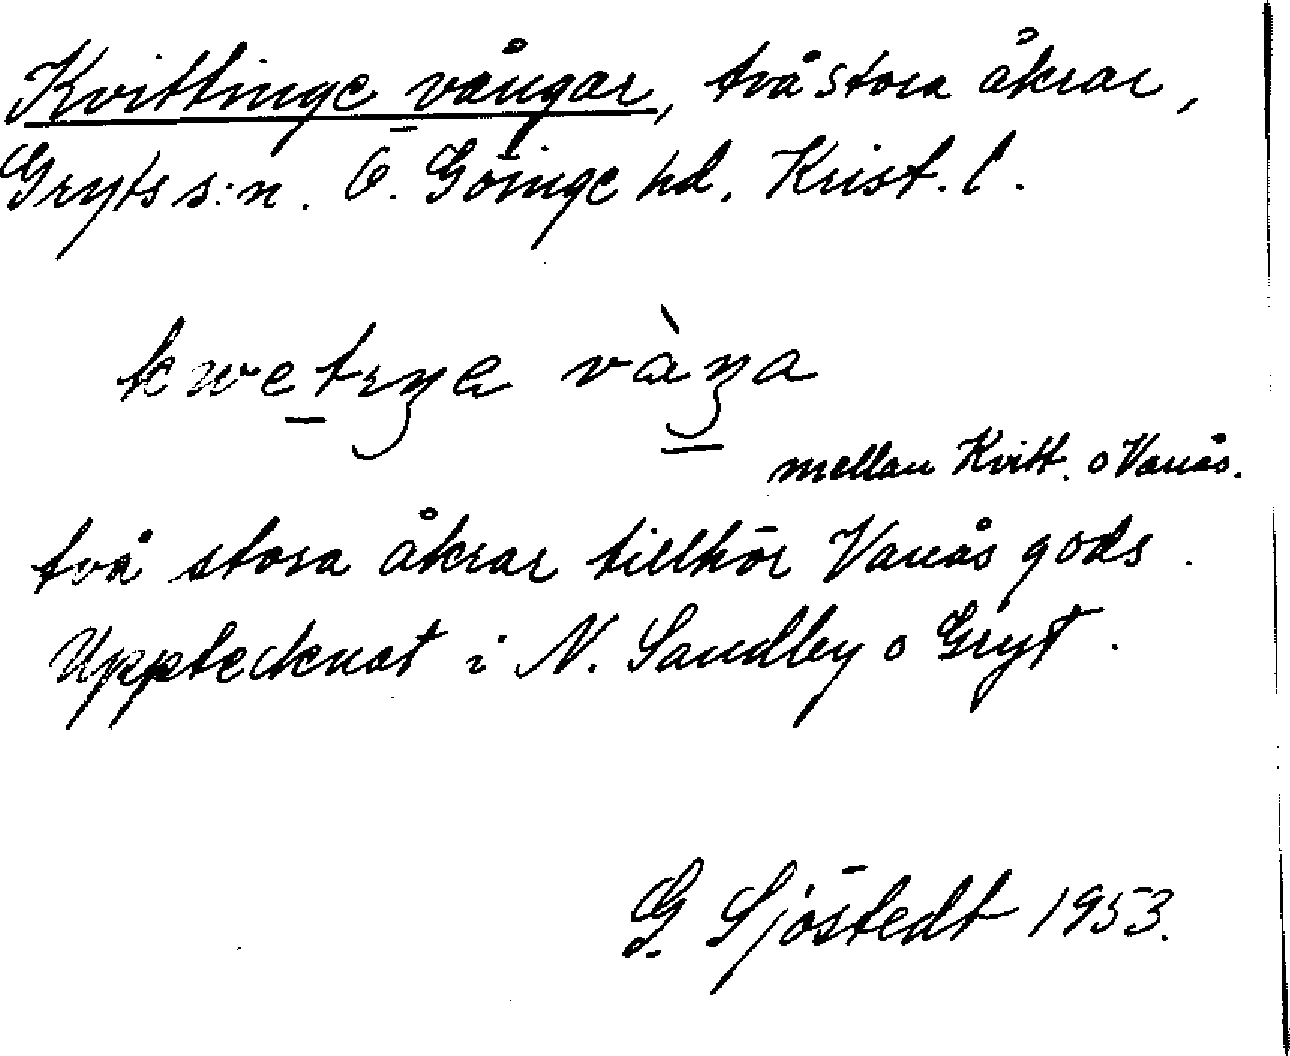 Kvittinge vångar, två stora åkrar,
Gryts s:n. Ö. Göinge hd. Krist. l.
kwetıŋe vàŋa
mellan Kvitt. o Vanås.
två stora åkrar tillhör Vanås gods.
Upptecknat i N. Sandby o Gryt.
G. Sjöstedt 1953.